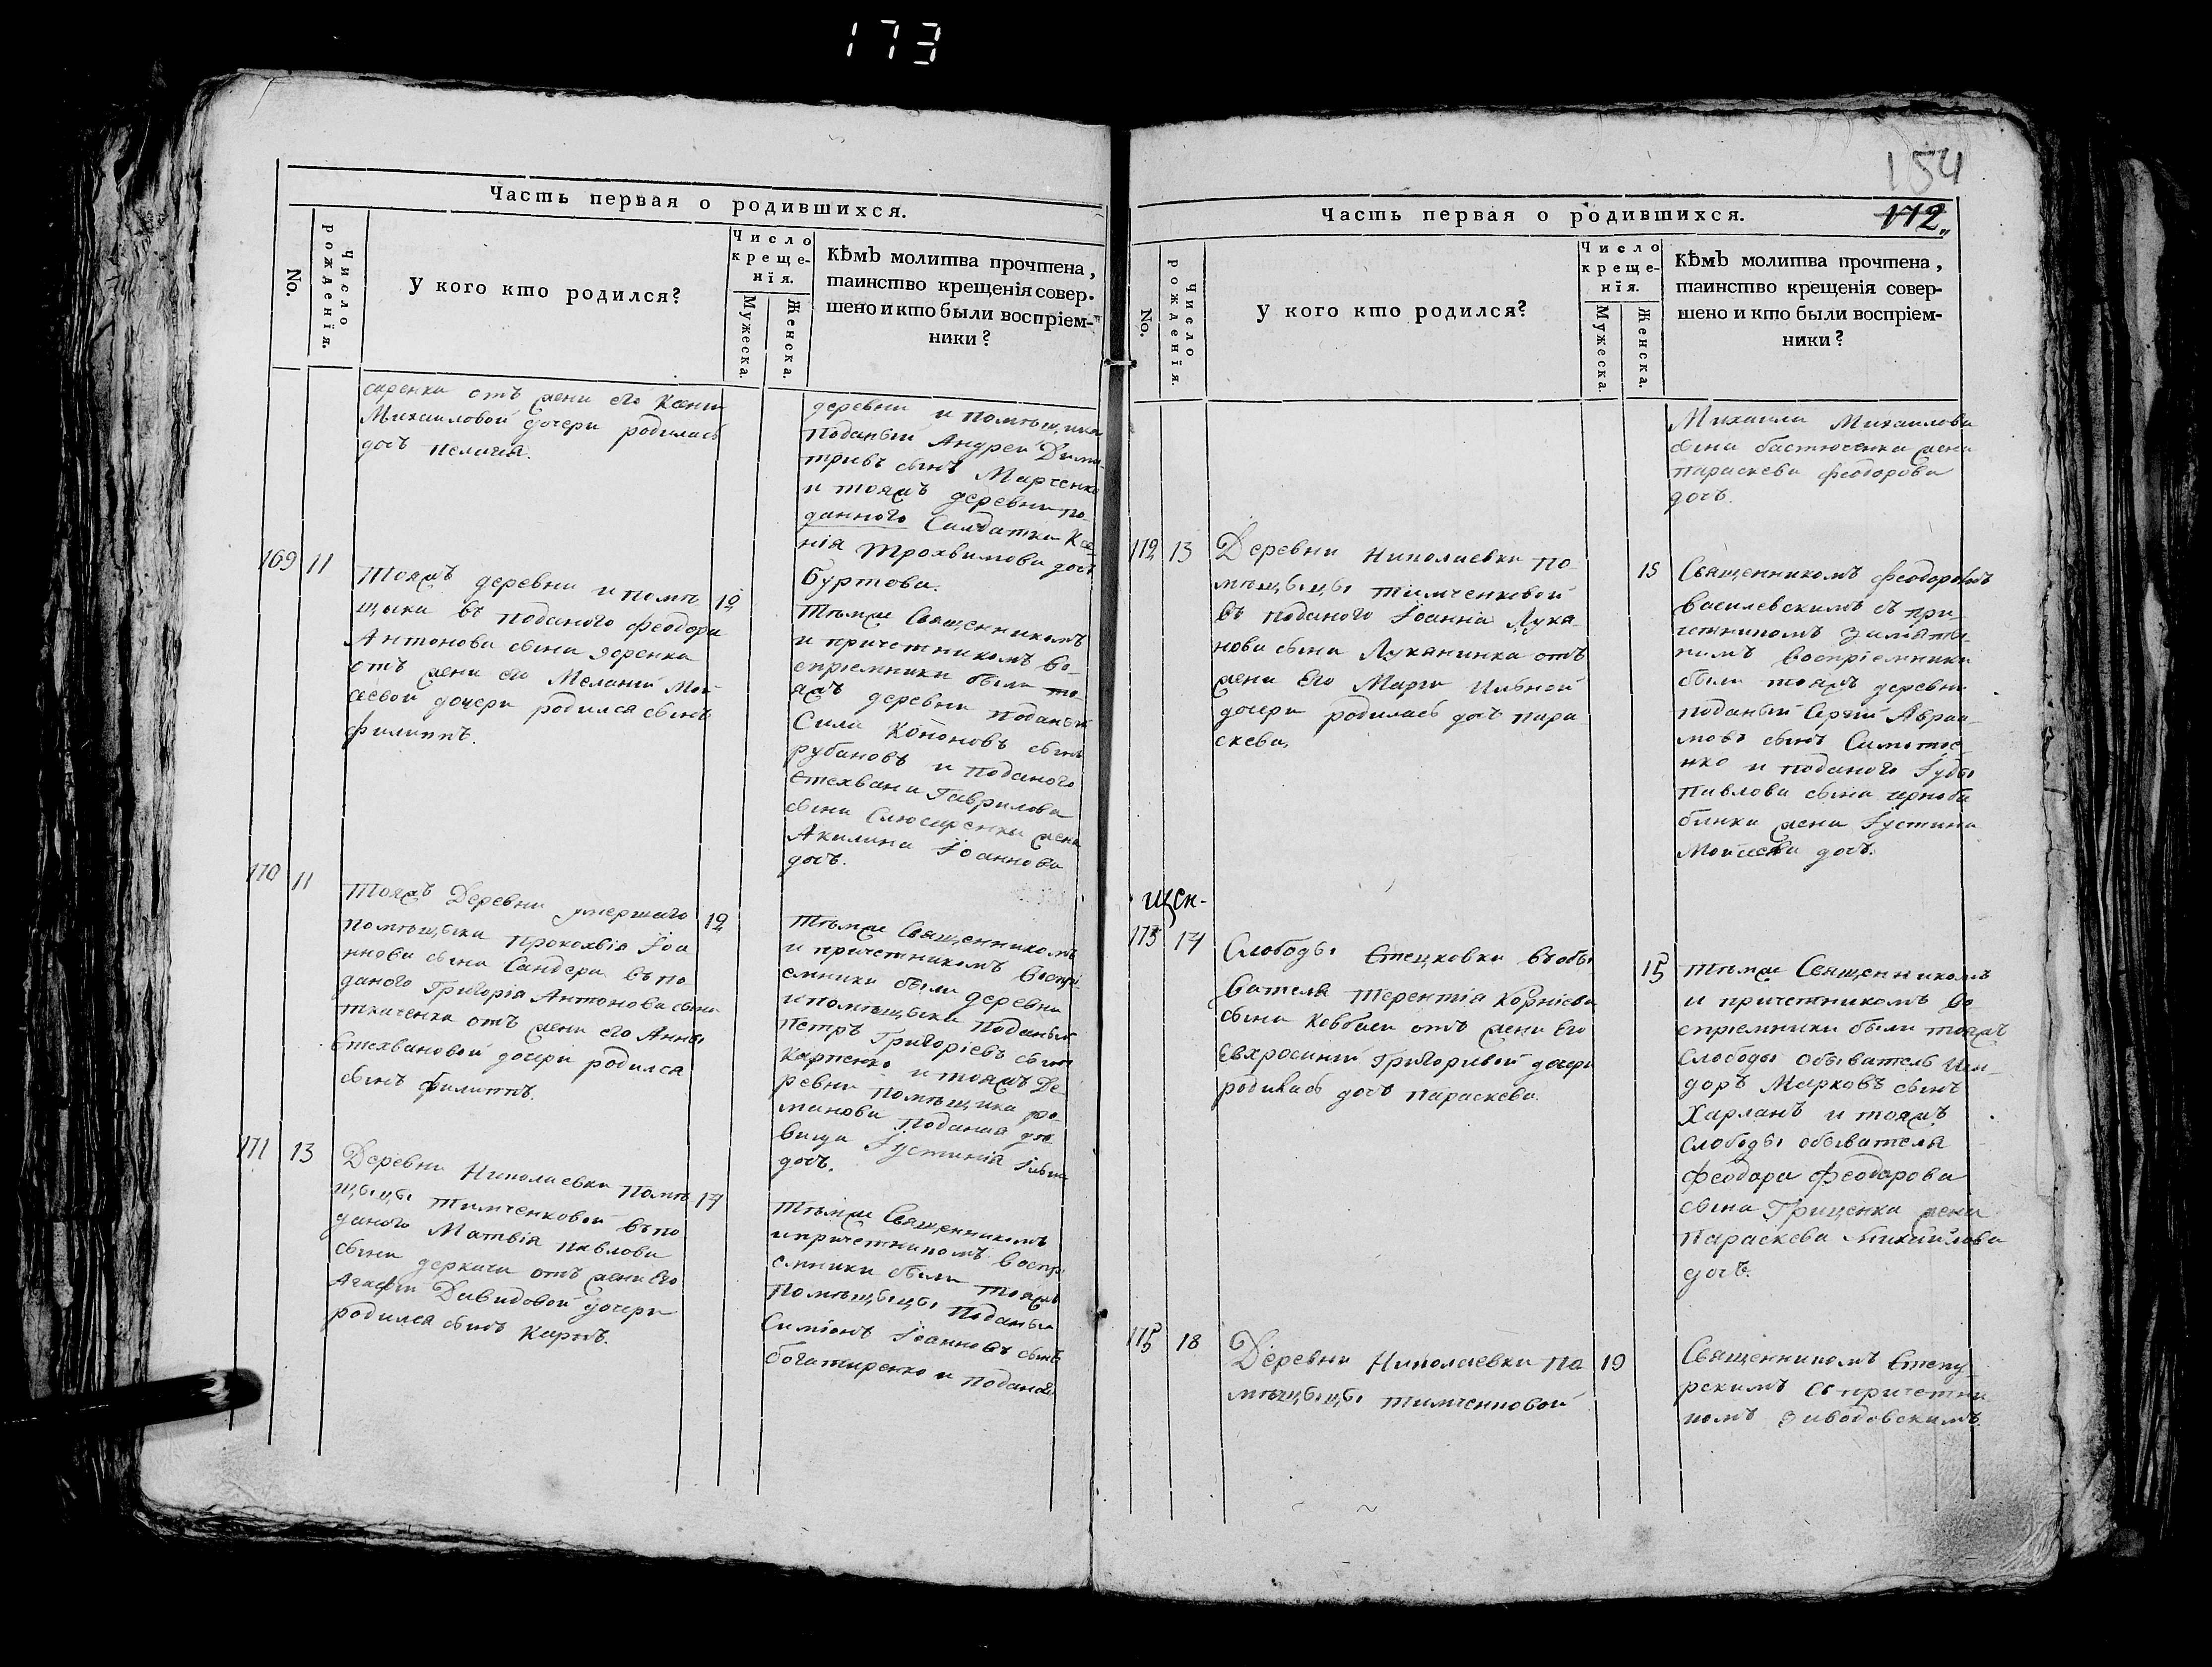 173
Часть первая о родившихся.
No.
Число рожденїя.
У кого кто родился?
Число
креще-
нїя.
Мужеска.
Женска.
Кѣмъ молитва прочтена,
таинство крещенїя совер-
шено и кто были воспрїем-
ники?
отъ жени его
Михаиловой дочери родилась
дочь Пелагия.
деревни и
поданый Андрей Дими-
тривъ сынъ Марченко
и тояжъ деревни по-
данного Салдатка Ксе-
нія Трохвимова дочь
Буртова.
169 11
Тояжъ деревни и помѣ 12
щика въ поданого Феодора
Антонова сына
отъ жени его Меланій Мой-
сеевой дочери родился сынъ
Филиппъ.
Тѣмже Священникомъ
и причетникомъ во-
спріемники были то-
яжъ деревни поданый
Сила Кононовъ сынъ
рубановъ и поданого
Стехвана Гаврилова
сына Слюсаренка жена
Акилина Іоаннова
дочь.
170 11
Тояжъ Деревни умершаго 12
помѣщыка Прокохвія Іоа
ннова сына Сандера въ по
даного Григорія Антонова сына
ткаченка отъ жени его Анны
Стехвановой дочери родился
сынъ Филиппъ.
Тѣмже Священникомъ
и причетникомъ воспрі
емники были деревни
и помѣщыка поданый
Петръ Григоріевъ сынъ
Карпенко и тояжъ Де
ревни помѣщика ро-
манова поданая дѣ
вица Іустинія
дочь.
171 13
Деревни Николаевки помѣ 14
щыцы Тимченковой въ по
даного Матвія Павлова
сына деркача отъ жени Его
Агафій Давидовой дочери
родился сынъ Карпъ.
Тѣмже Священникомъ
и причетникомъ воспрі
емники были тояжъ
помѣщыцы поданый
Симіонъ Іоанновъ сынъ
богатиренко и поданая
154
172.
Часть первая о родившихся.
No.
Число рожденїя.
У кого кто родился?
Число
креще-
нїя.
Мужеска.
Женска.
Кѣмъ молитва прочтена,
таинство крещенїя совер-
шено и кто были воспрїем-
ники?
Михаила Михаилова
сына бастюченка жена
Параскева Феодорова
дочь.
172 13
Деревни Николаевки по-
мѣщыцы Тимченковой
въ поданого Іоанна Лука-
нова сына Луканинка отъ
жени Его Марѳи
дочери родилась дочь Пара
скева.
15
Священникомъ Феодоромъ
Василевскимъ съ при-
четникомъ
воспріемники
были тояжъ деревни
поданый Сергій Авраа-
мовъ сынъ
нко и поданого Іуды
Павлова сына чорноба
бинка жена Іустина
Мойсеева дочь.
щен-
173 14
Слободы Стецковки въ обы
вателя Терентія Корніева
сына Ковбаси отъ жени Его
Евхросиній Григоривой дочери
родилась дочь Параскева.
15
Тѣмже Священникомъ
и причетникомъ во
спріемники были тояжъ
слободы обыватель Иси-
доръ Марковъ сынъ
Харланъ и тояжъ
слободы обывателя
Феодора Феодорова
сына Гриценка жена
Параскева Михайлова
дочь.
175 18
Деревни Николаевки По 19
мѣщыцы Тимченковой
Священникомъ Степу
рскимъ съ причетни
комъ Заводовскимъ.